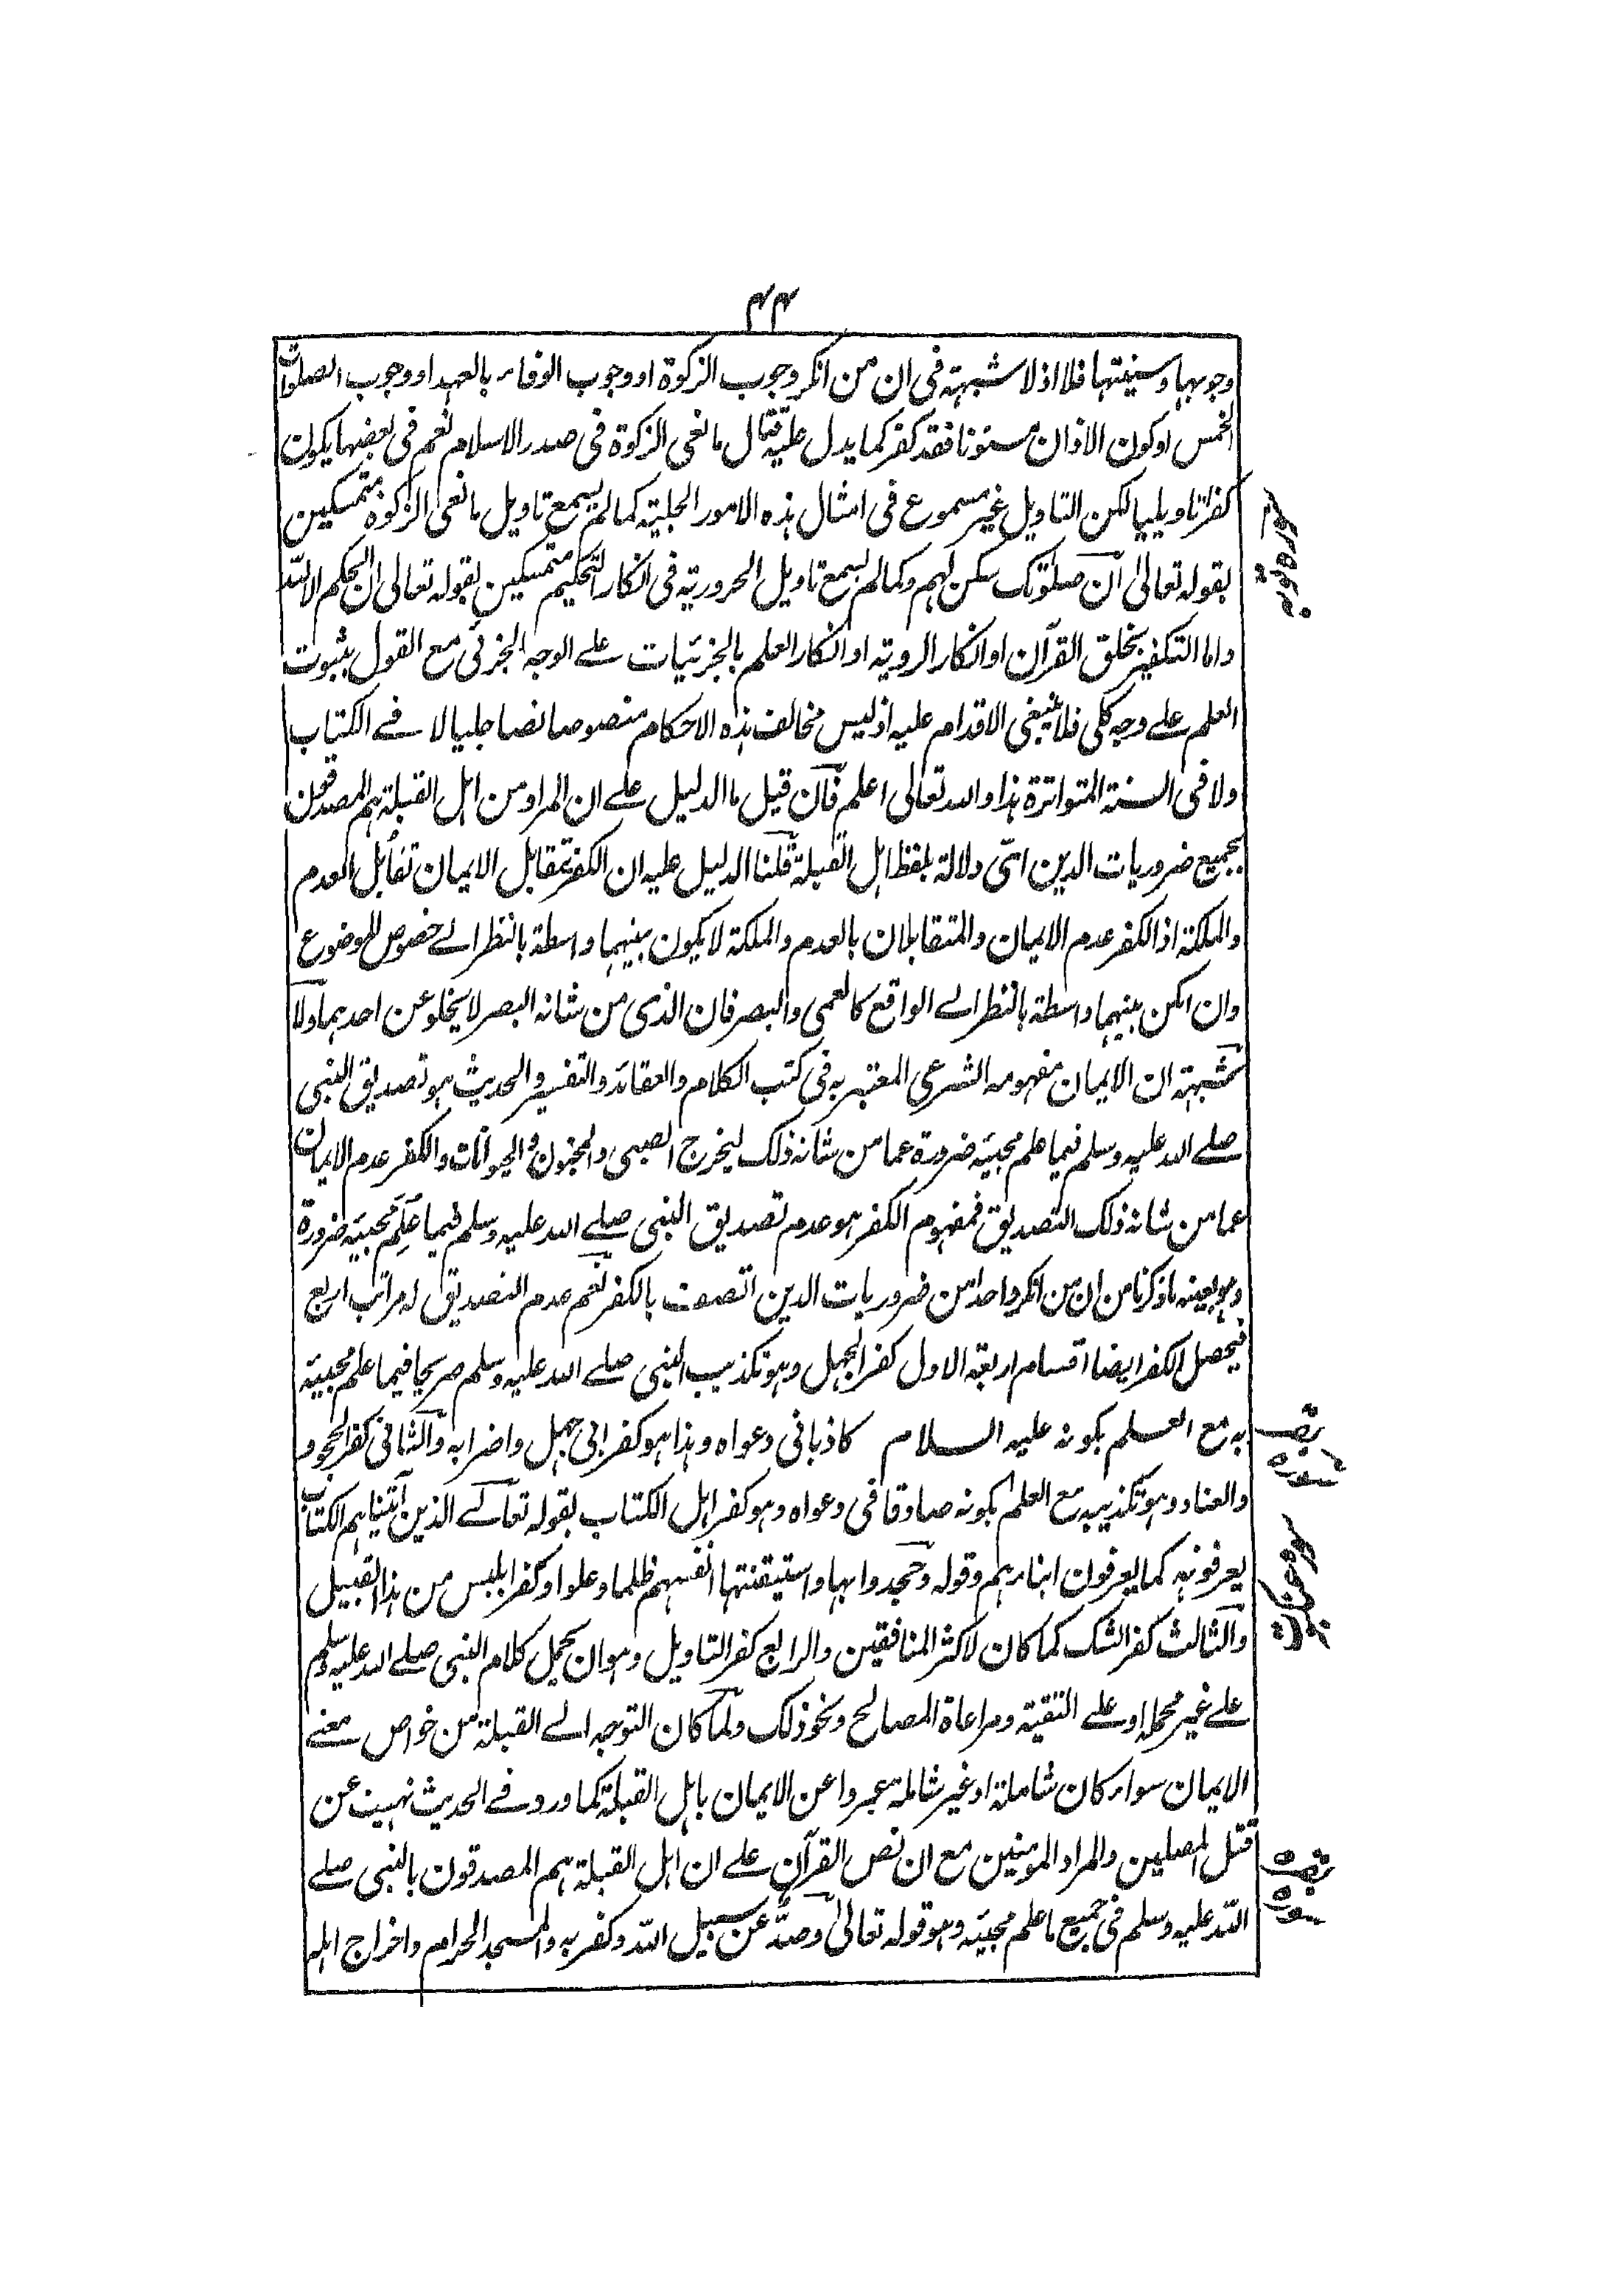 ۴۴
وجوبها وسنيتها فلا اذ لا شبهته فى ان من انكر وجوب الزكوة او وجوب الوفاء بالعهد او وجوب الصلوات
الخمس او كون الاذان مسنونا فقد كفر كما يدل عليه قتال مانعى الزكوة فى صدر الاسلام نعم فى بعضها يكون
كفرا تاويليا لكن التاويل غير مسموع فى امثال هذه الامور الجلية كما لم يسمع تاويل مانعى الزكوة متمسكين
بقوله تعالى ان صلوتك سكن لهم وكما لم يسمع تاويل الحرورية فى انكار التحكيم متمسكين بقوله تعالى ان الحكم الا لله
واما التكفير بخلق القرآن او انكار الروية او انكار العلم بالجزئيات علے الوجه الجزئى مع القول بثبوت
العلم علے وجه كلى فلا ينبغى الاقدام عليه اذ ليس مخالف هذه الاحكام منصوصا نصا جليا لا فے الكتاب
ولا فى السنة المتواترة هذا والله تعالى اعلم فان قيل ما الدليل علے ان المراد من اهل القبلة هم المصدقون
بجميع ضروريات الدين اىّ دلالة بلفظ اهل القبلة قلنا الدليل عليه ان الكفر يتقابل الايمان تقابل العدم
والملكة اذ الكفر عدم الايمان والمتقابلان بالعدم والملكة لا يكون بينهما واسطة بالنظر الے خصوص الموضوع
وان امكن بينهما واسطة بالنظر الے الواقع كالعمى والبصر فان الذى من شانه البصر لا يخلو عن احدهما ولا
شبهته ان الايمان مفهومه الشرعى المعتبر به فى كتب الكلام والعقائد والتفسير والحديث هو تصديق النبى
صلے الله عليه وسلم فيما علم مجيئه ضرورة عما من شانه ذلك ليخرج الصبى والمجنون والحيوانات والكفر عدم الايمان
عما من شانه ذلك التصديق فمفهوم الكفر هو عدم تصديق النبى صلے الله عليه وسلم فيما علم مجيئه ضرورة
وهو بعينه ما ذكرنا من ان من انكر واحدا من ضروريات الدين اتصف بالكفر نعم عدم التصديق له مراتب اربع
فيحصل للكفر ايضا اقسام اربعة الاول كفر الجهل وهو تكذيب النبى صلے الله عليه وسلم صريحا فيما علم مجيئه
به مع العلم بكونه عليه السلام كاذبا فى دعواه وهذا هو كفر ابى جهل واضرابه والثانى كفر الجحود
والعناد وهو تكذيبه مع العلم بكونه صادقا فى دعواه وهو كفر اهل الكتاب لقوله تعالے الذين آتيناهم الكتاب
يعرفونه كما يعرفون ابناءهم وقوله وجحدوا بها واستيقنتها انفسهم ظلما وعلوا وكفر ابليس من هذا القبيل
والثالث كفر الشك كما كان لاكثر المنافقين والرابع كفر التاويل وهو ان يحمل كلام النبى صلے الله عليه وسلم
علے غير محمله او علے التقية ومراعاة المصالح ونحو ذلك ولما كان التوجه الے القبلة من خواص معنے
الايمان سواء كان شاملة او غير شاملة عبروا عن الايمان باهل القبلة كما ورد فے الحديث نهيت عن
قتل المصلين والمراد المومنين مع ان نص القرآن علے ان اهل القبلة هم المصدقون بالنبى صلے
الله عليه وسلم فى جميع ما علم مجيئه وهو قوله تعالى وصدّ عن سبيل الله وكفر به والمسجد الحرام واخراج اهله
سوره توبه
سوره بقره
سوره عنكبوت
سوره بقره